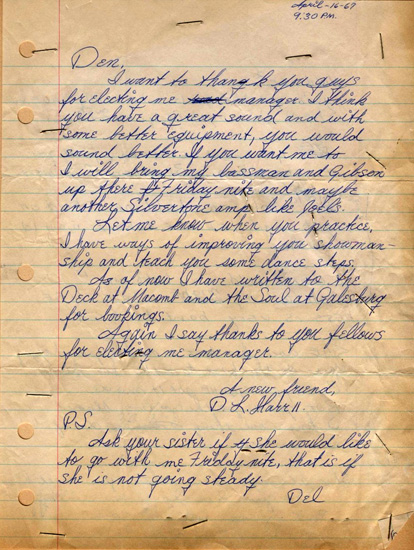 April-16-67
9.30 P.M.
Den,
I want to thank you guys
for electing me manager. I think
you have a great sound and with
some better equipment, you would
sound better. If you want me to
I will bring my bassman and Gibson
up there Friday nite and maybe
another Silvertone amp like Joel's.
Let me know when you practice,
I have ways of improving you showman-
ship and teach you some dance steps.
As of now I have written to the
Deck at Macomb and the Soul at Galesburg
for bookings.
Again I say thanks to you fellows
for electing me manager.
A new friend,
D. L. Harr II
P.S.
Ask your sister if she would like
to go with me Friday nite, that is if
she is not going steady.
Del